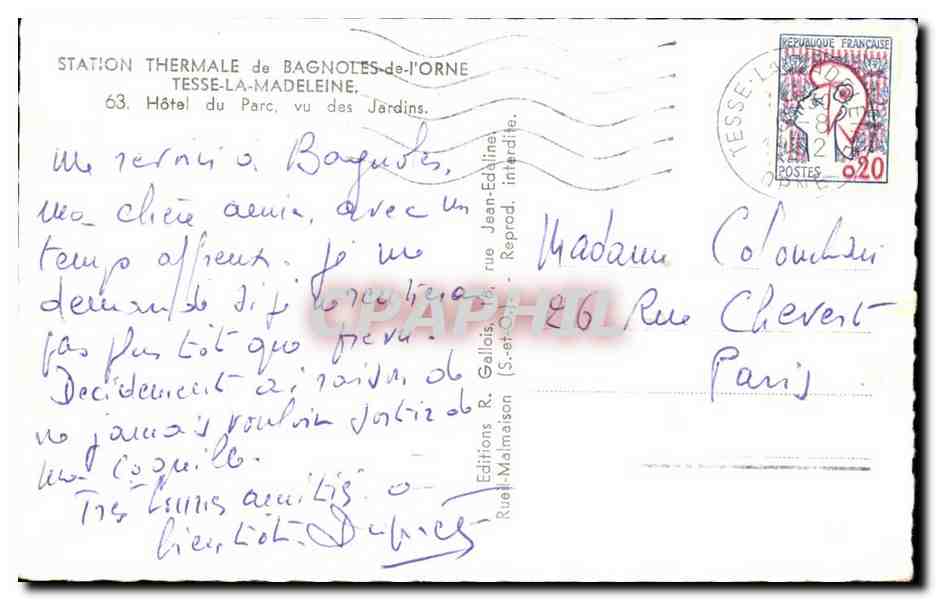 STATION THERMALE de BAGNOLES-de-l'ORNE
TESSE-LA-MADELEINE.
63. Hôtel du Parc, vu des Jardins.
RÉPUBLIQUE FRANÇAISE
POSTES 0,20
TESSE-LA-MADELEINE
ORNE
me à Bagnoles,
ma chère amie, avec un
temps affreux. Je me
demande si je
pas plus tôt que prévu.
Décidement ai raison de
ne jamais vouloir sortir de
ma coquille.
Très bonnes amitiés. à
bientôt.
Editions R. Gallois, rue Jean-Edeline
Rueil-Malmaison (S.-et-O.) - Reprod. interdite.
Madame
26 Rue Chevert
Paris
CPAPHIL